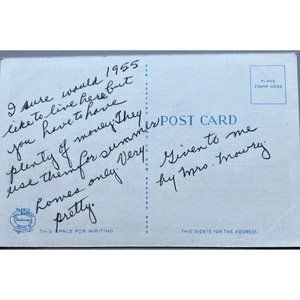 1955
I sure would
like to live here but
you have to have
plenty of money. They
use them for summer
homes only. Very
pretty.
THIS SPACE FOR WRITING
POST CARD
PLACE
STAMP HERE
Given to me
by Mrs. Mowry
THIS SIDE IS FOR THE ADDRESS